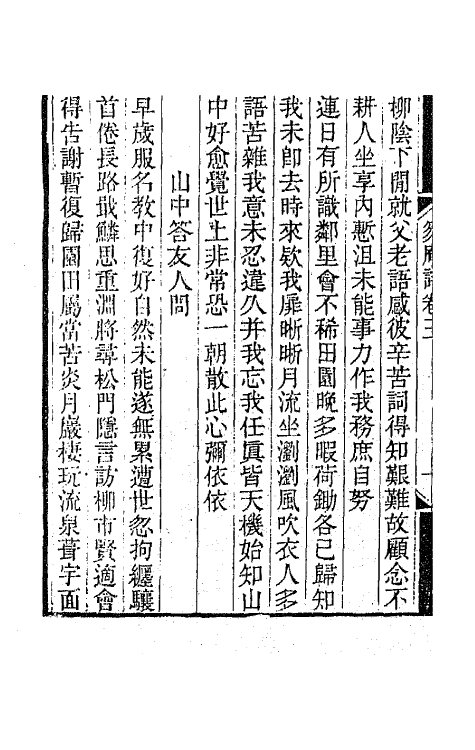 柳陰下閒就父老語感彼辛苦詞得知艱難故顧念不
耕人坐享內慙沮未能事力作我務庶自努
連日有所識鄰里會不稀田園晚多暇荷鋤各已歸知
我未卽去時來欵我扉晰晰月流坐瀏瀏風吹衣人多
語苦雜我意未忍違久幷我忘我任眞皆天機始知山
中好愈覺世上非常恐一朝散此心彌依依
山中答友人問
早歲服名敎中復好自然未能遂無累遭世忽拘纒驤
首倦長路戢鱗思重淵將尋松門隱言訪柳市賢適會
得告謝暫復歸園田屬當苦炎月巖棲玩流泉葺宇面